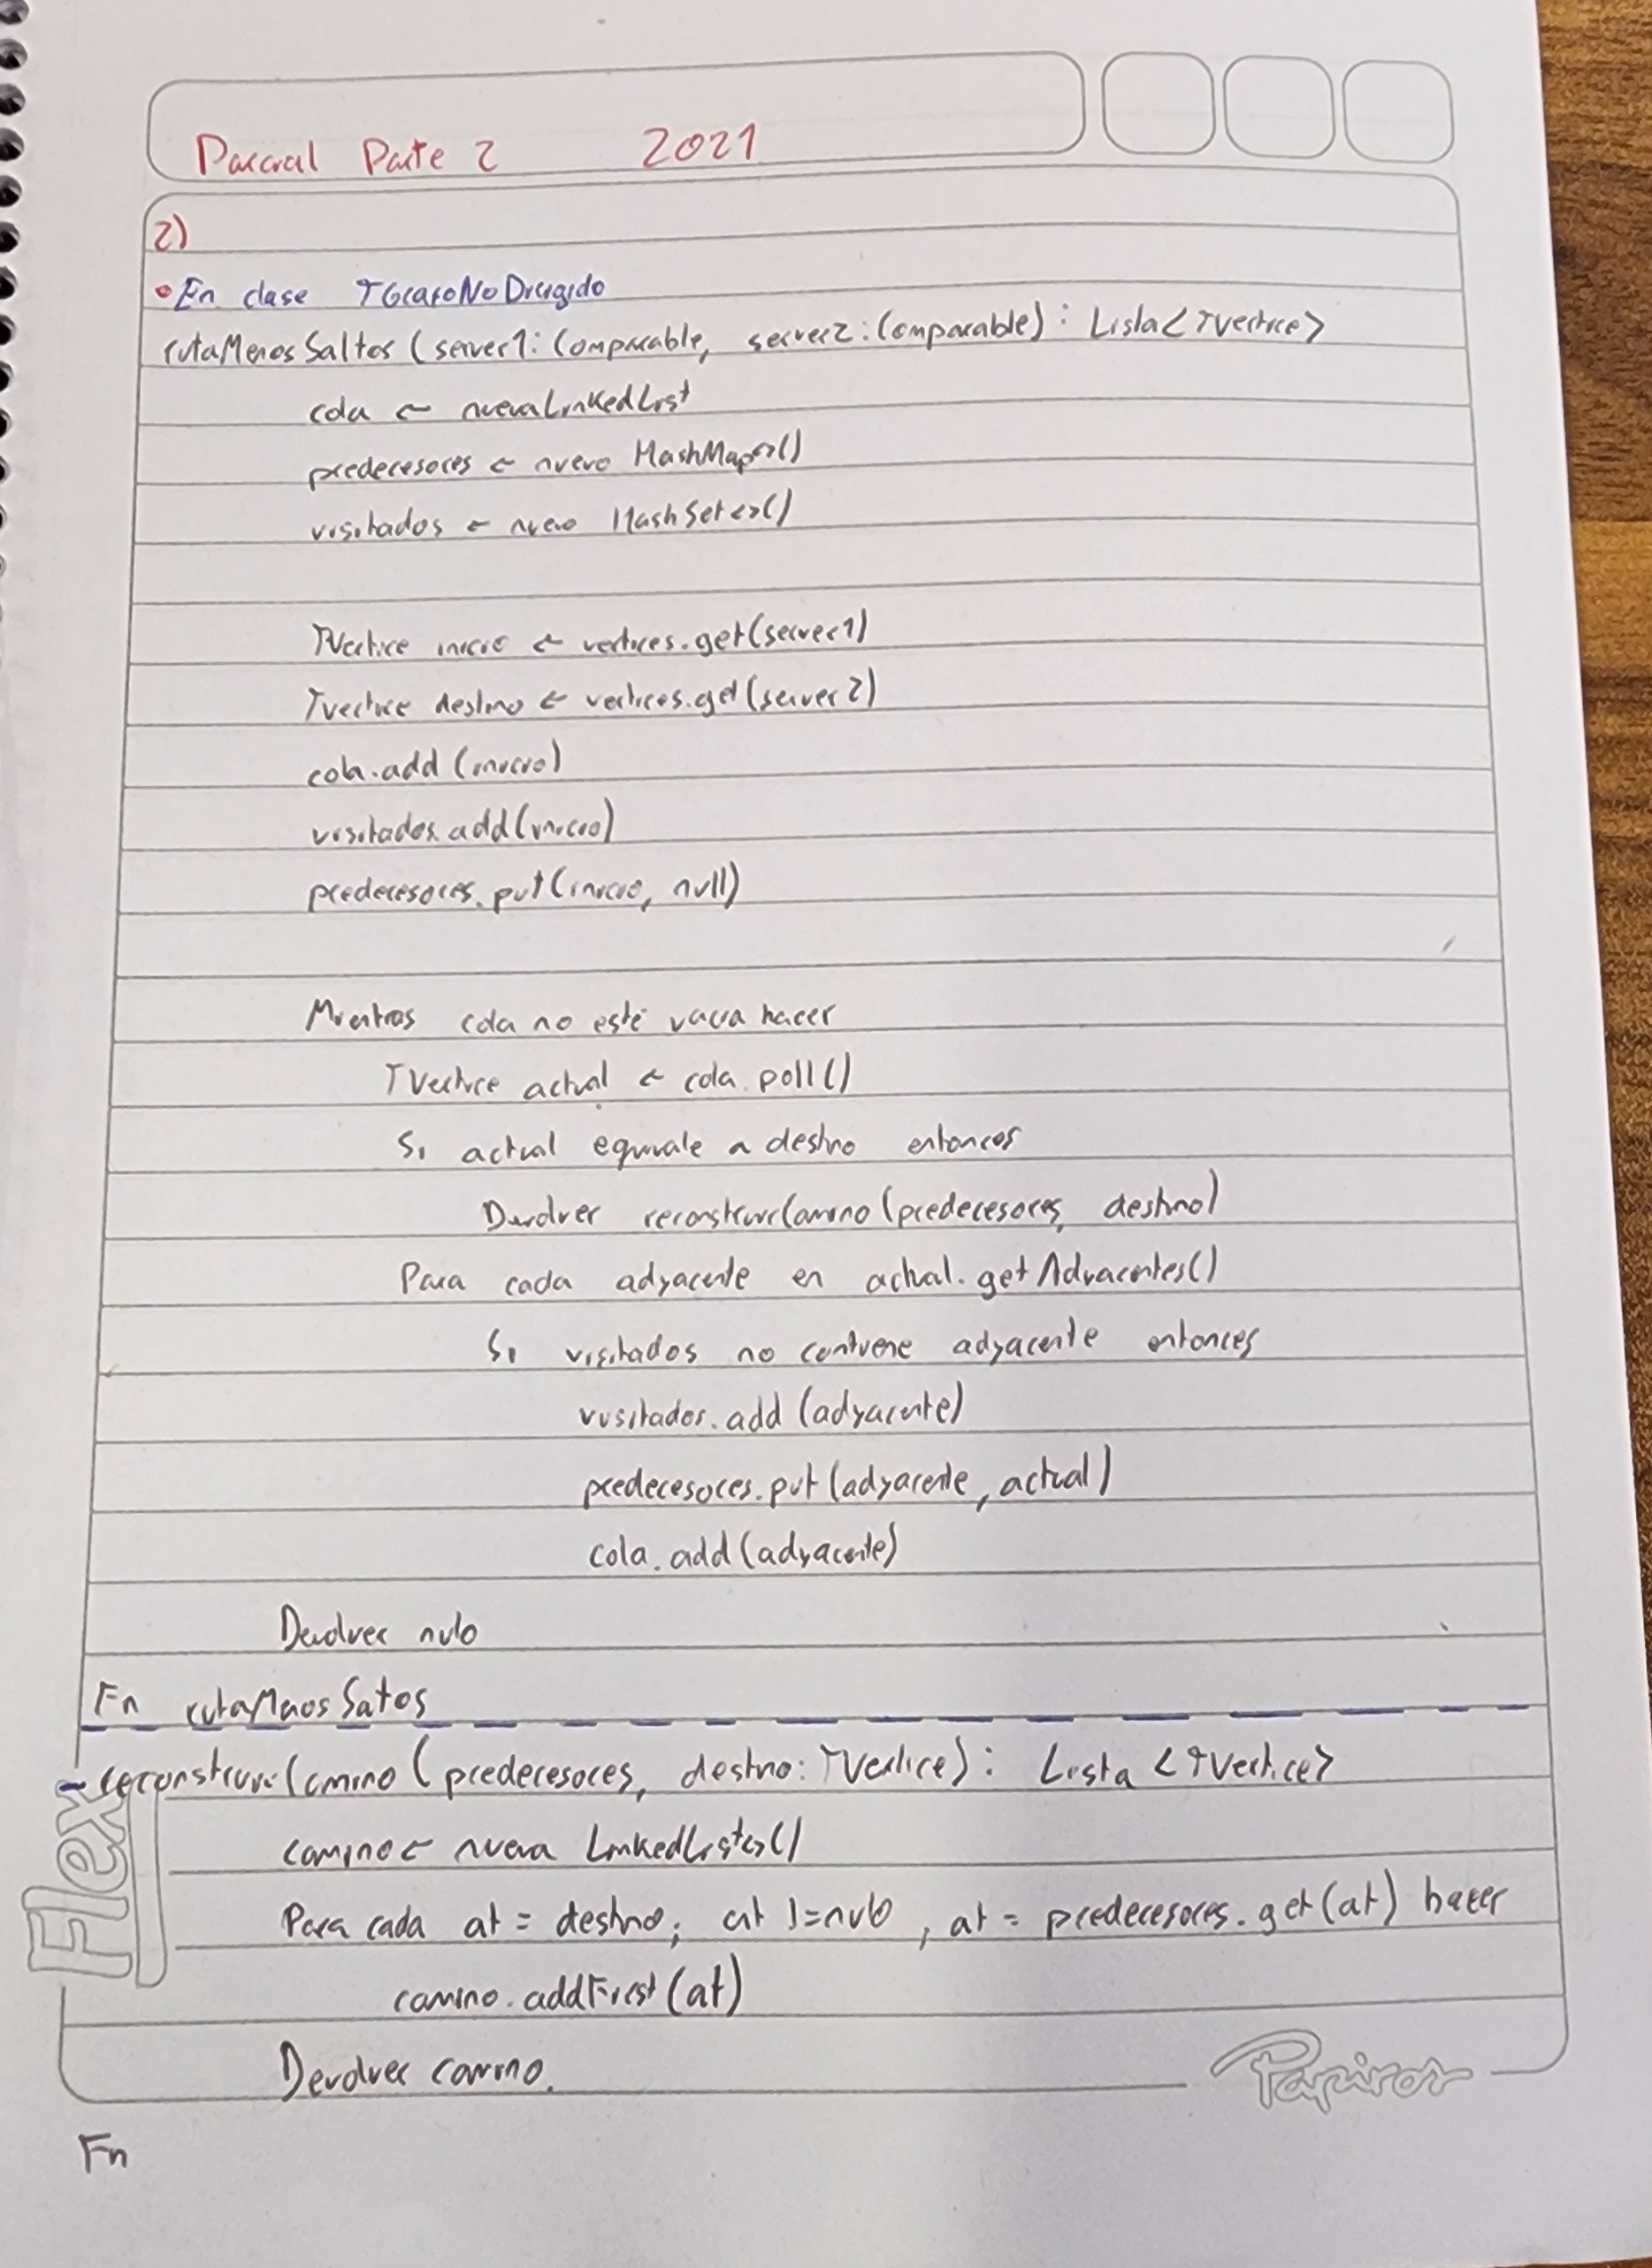 Parcial Parte 2 2021
2)
• En clase TGrafoNoDirigido
rutaMenosSaltos (server1: Comparable, server2: Comparable) : Lista<TVertice>
cola ← nueva LinkedList
predecesores ← nuevo HashMap<>()
visitados ← nuevo HashSet<>()
TVertice inicio ← vertices.get(server1)
TVertice destino ← vertices.get(server2)
cola.add(inicio)
visitados.add(inicio)
predecesores.put(inicio, null)
Mientras cola no esté vacia hacer
TVertice actual ← cola.poll()
Si actual equivale a destino entonces
Devolver reconstruirCamino(predecesores, destino)
Para cada adyacente en actual.getAdyacentes()
Si visitados no contiene adyacente entonces
visitados.add(adyacente)
predecesores.put(adyacente, actual)
cola.add(adyacente)
Devolver nulo
Fin rutaMenosSatos
- reconstruirCamino (predecesores, destino: TVertice) : Lista <TVertice>
camino ← nueva LinkedList<>()
Para cada at = destino; at != nulo, at = predecesores.get(at) hacer
camino.addFirst(at)
Devolver camino.
Fin
Flex
Papiros